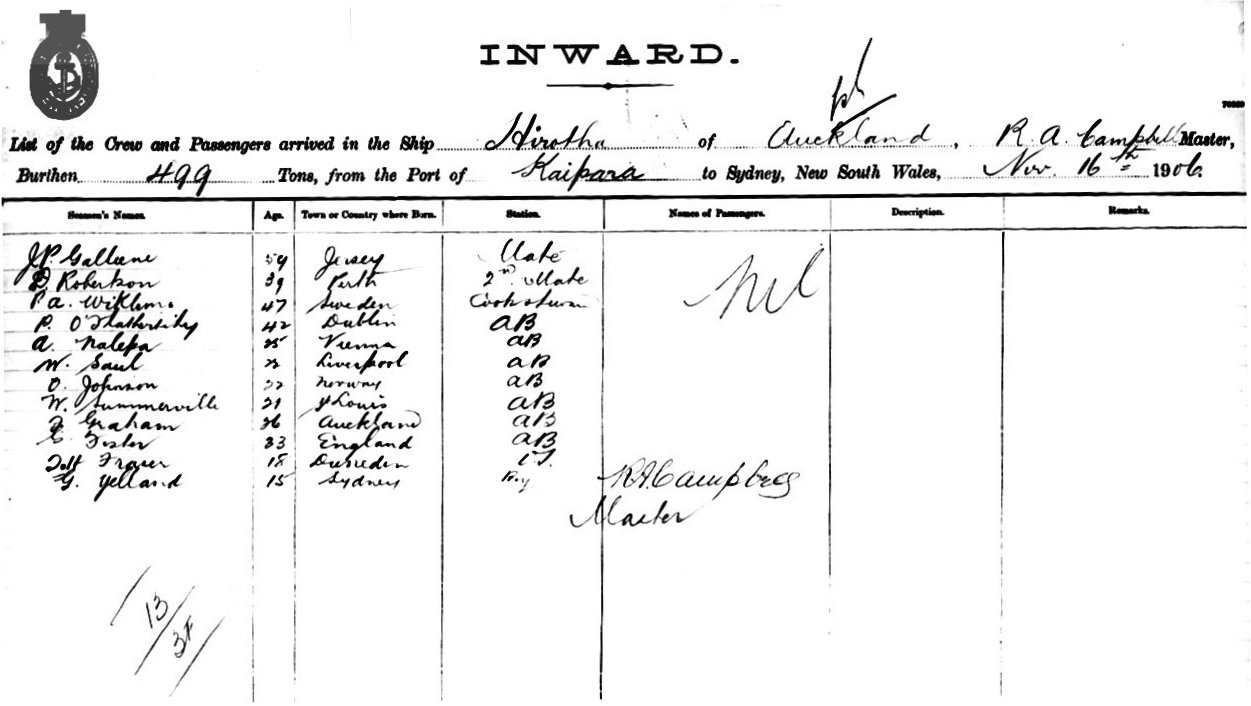 INWARD.
List of the Crew and Passengers arrived in the Ship Hirotha of Auckland, R. A. Campbell Master,
Burthen 499 Tons, from the Port of Kaipara to Sydney, New South Wales, Nov. 16th 1906.
Seamen's Names. Age. Town or Country where Born. Station. Names of Passengers. Description. Remarks.
J.P. Galliene 59 Jersey Mate
D. Robertson 39 Perth 2nd Mate Nil
P. A. 47 Sweden Cook &
P. O'Flahertihy 42 Dublin AB
A. Nalepa 25 Vienna AB
W. Saul Liverpool AB
O. Johnson 22 Norway AB
W. Summerville 21 St Louis AB
Graham 26 Auckland AB
Foster 33 England AB
Fraser 18 Dunedin
G. Yelland 15 Sydney Boy R.A. Campbell
Master
13